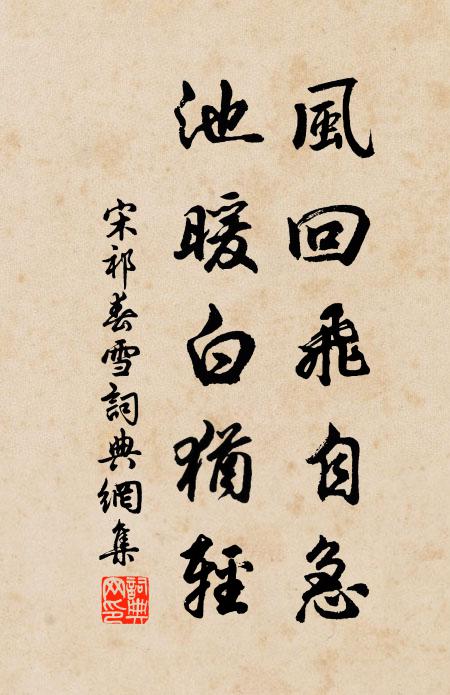 風回飛自急
池暖白猶輕
宋祁春雪詞典網集
詞典網印